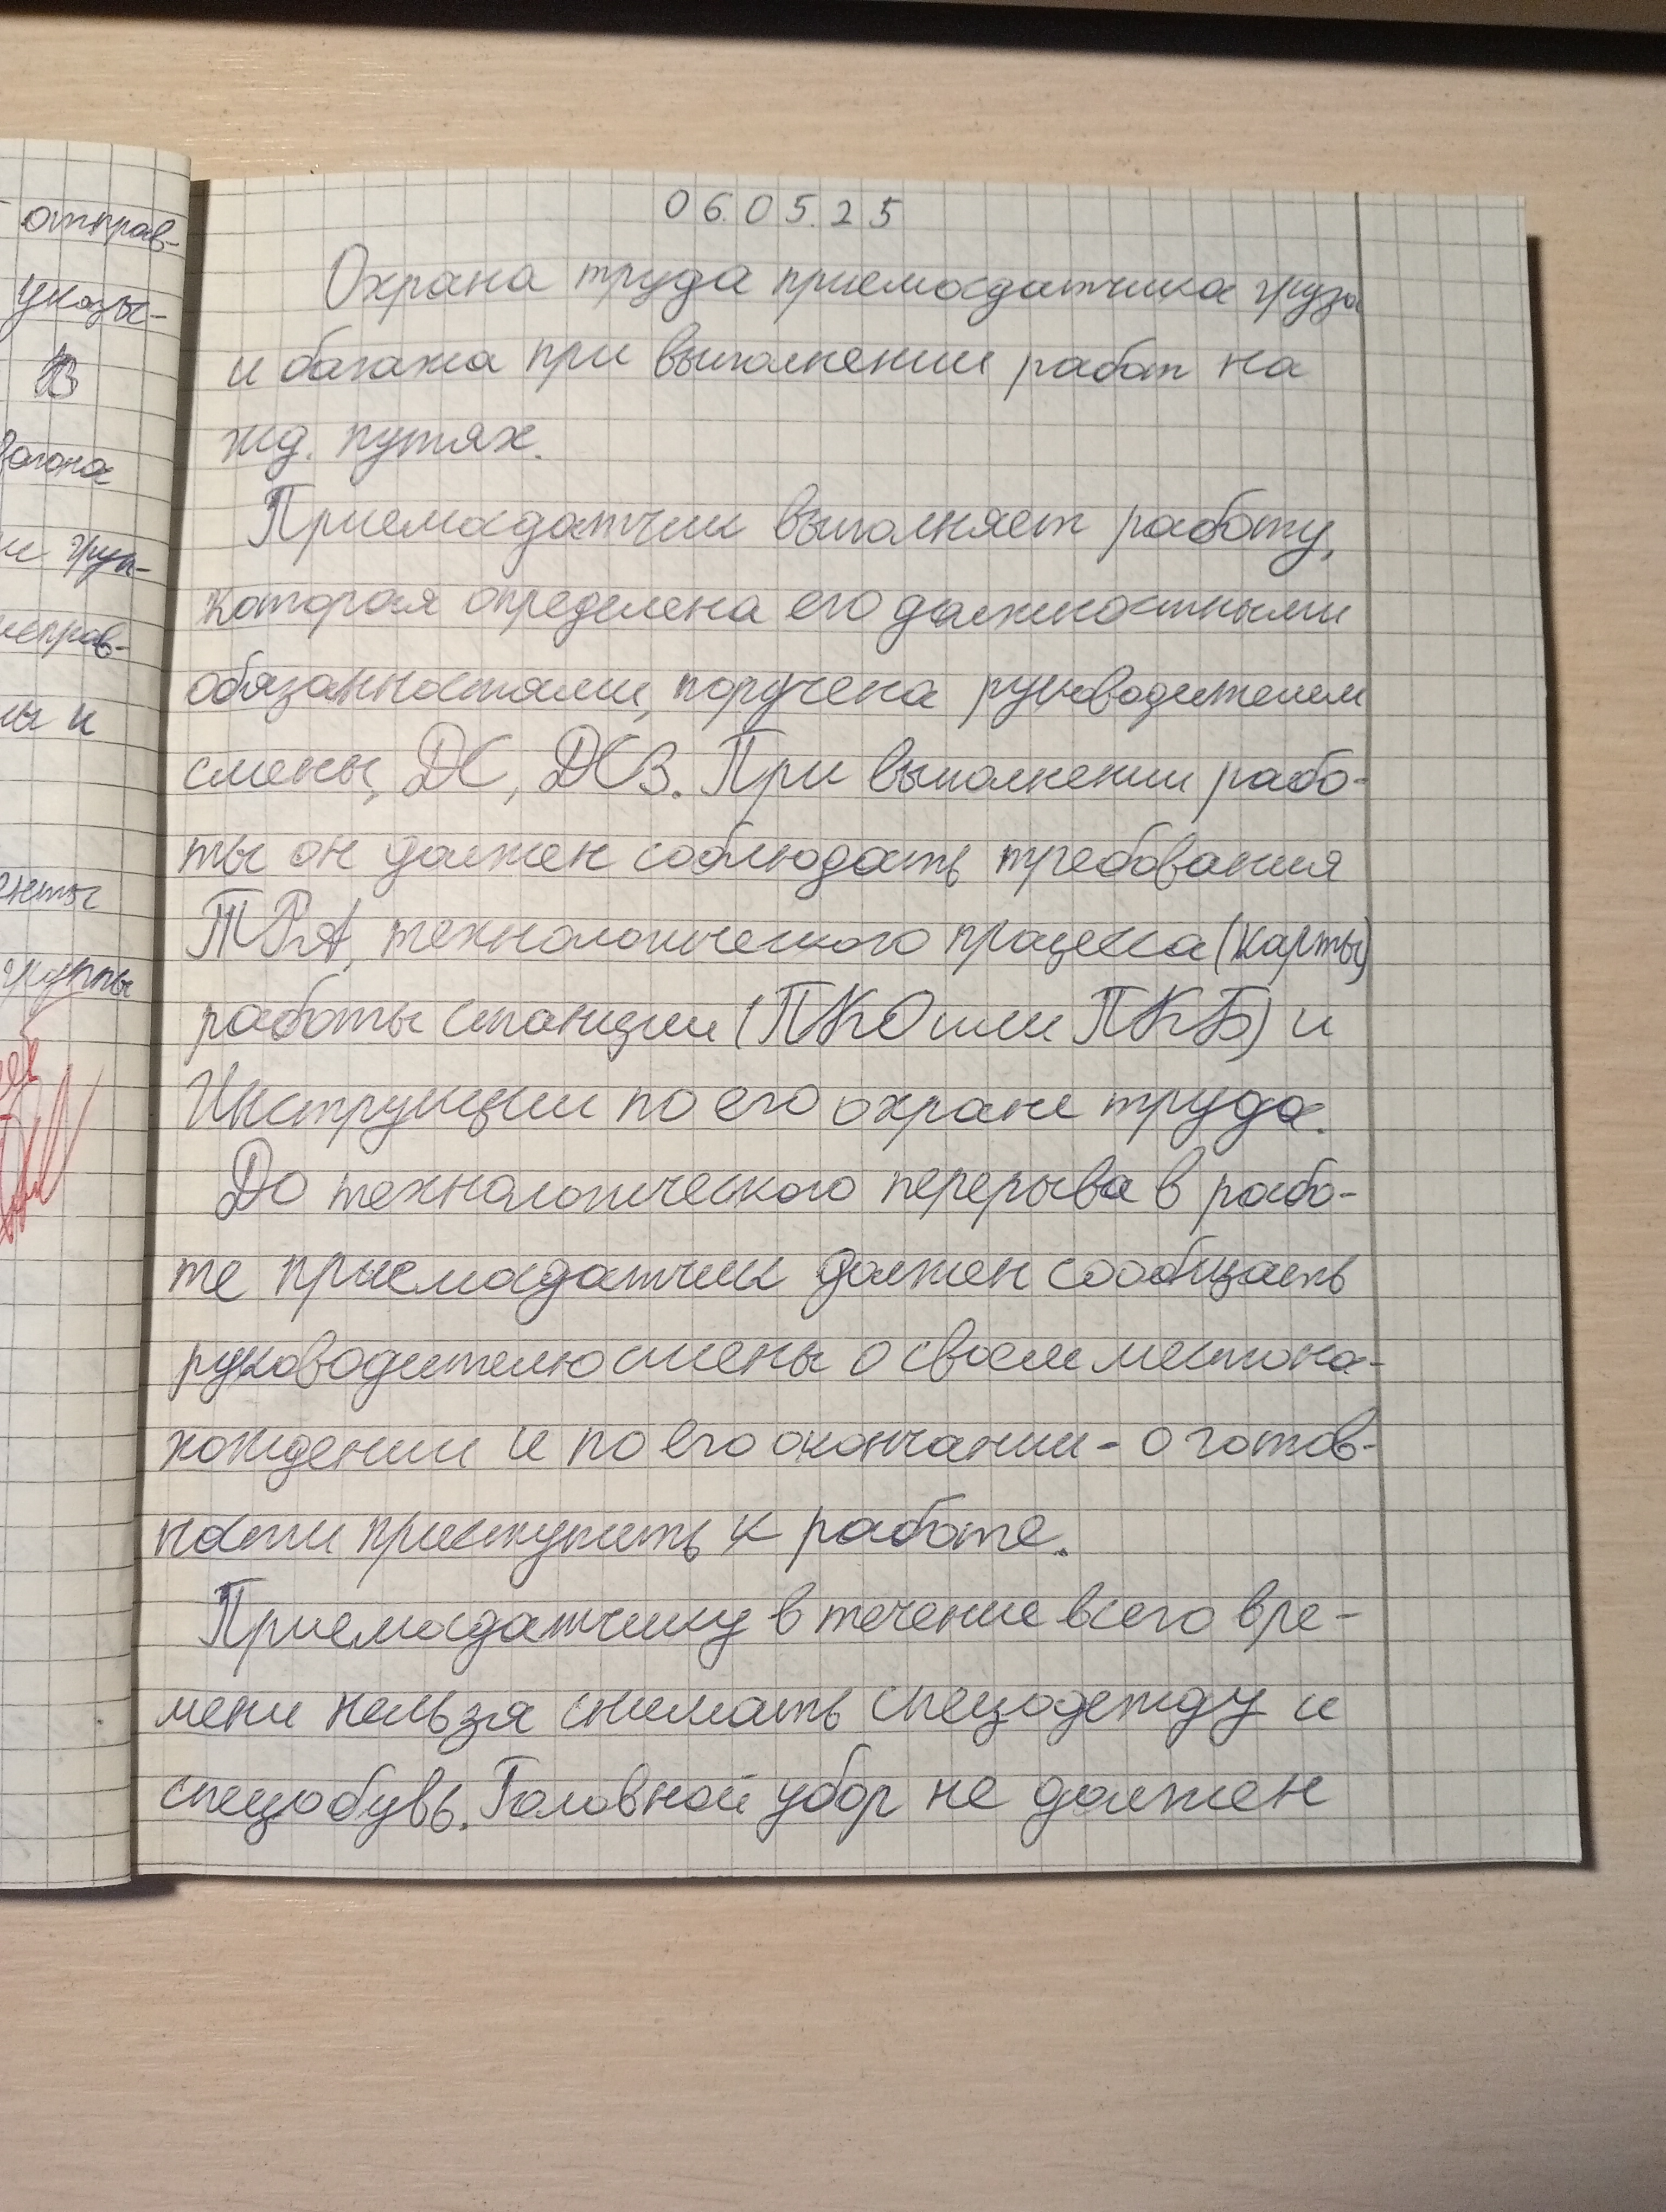 отправ-
указы-
В
вагона
груп-
неправ-
ны и
енты
группы
06.05.25
Охрана труда приемосдатчика груза
и багажа при выполнении работ на
жд. путях.
Приемосдатчик выполняет работу,
которая определена его должностными
обязанностями, поручена руководителем
смены, ДС, ДСЗ. При выполнении рабо-
ты он должен соблюдать требования
ТРА, технологического процесса (карты)
работы станции (ПКО или ПКБ) и
Инструкции по его охране труда.
До технологического перерыва в рабо-
те приемосдатчик должен сообщать
руководителю смены о своем местона-
хождении и по его окончании - о готов-
ности приступить к работе.
Приемосдатчику в течение всего вре-
мени нельзя снимать спецодежду и
спецобувь. Головной убор не должен